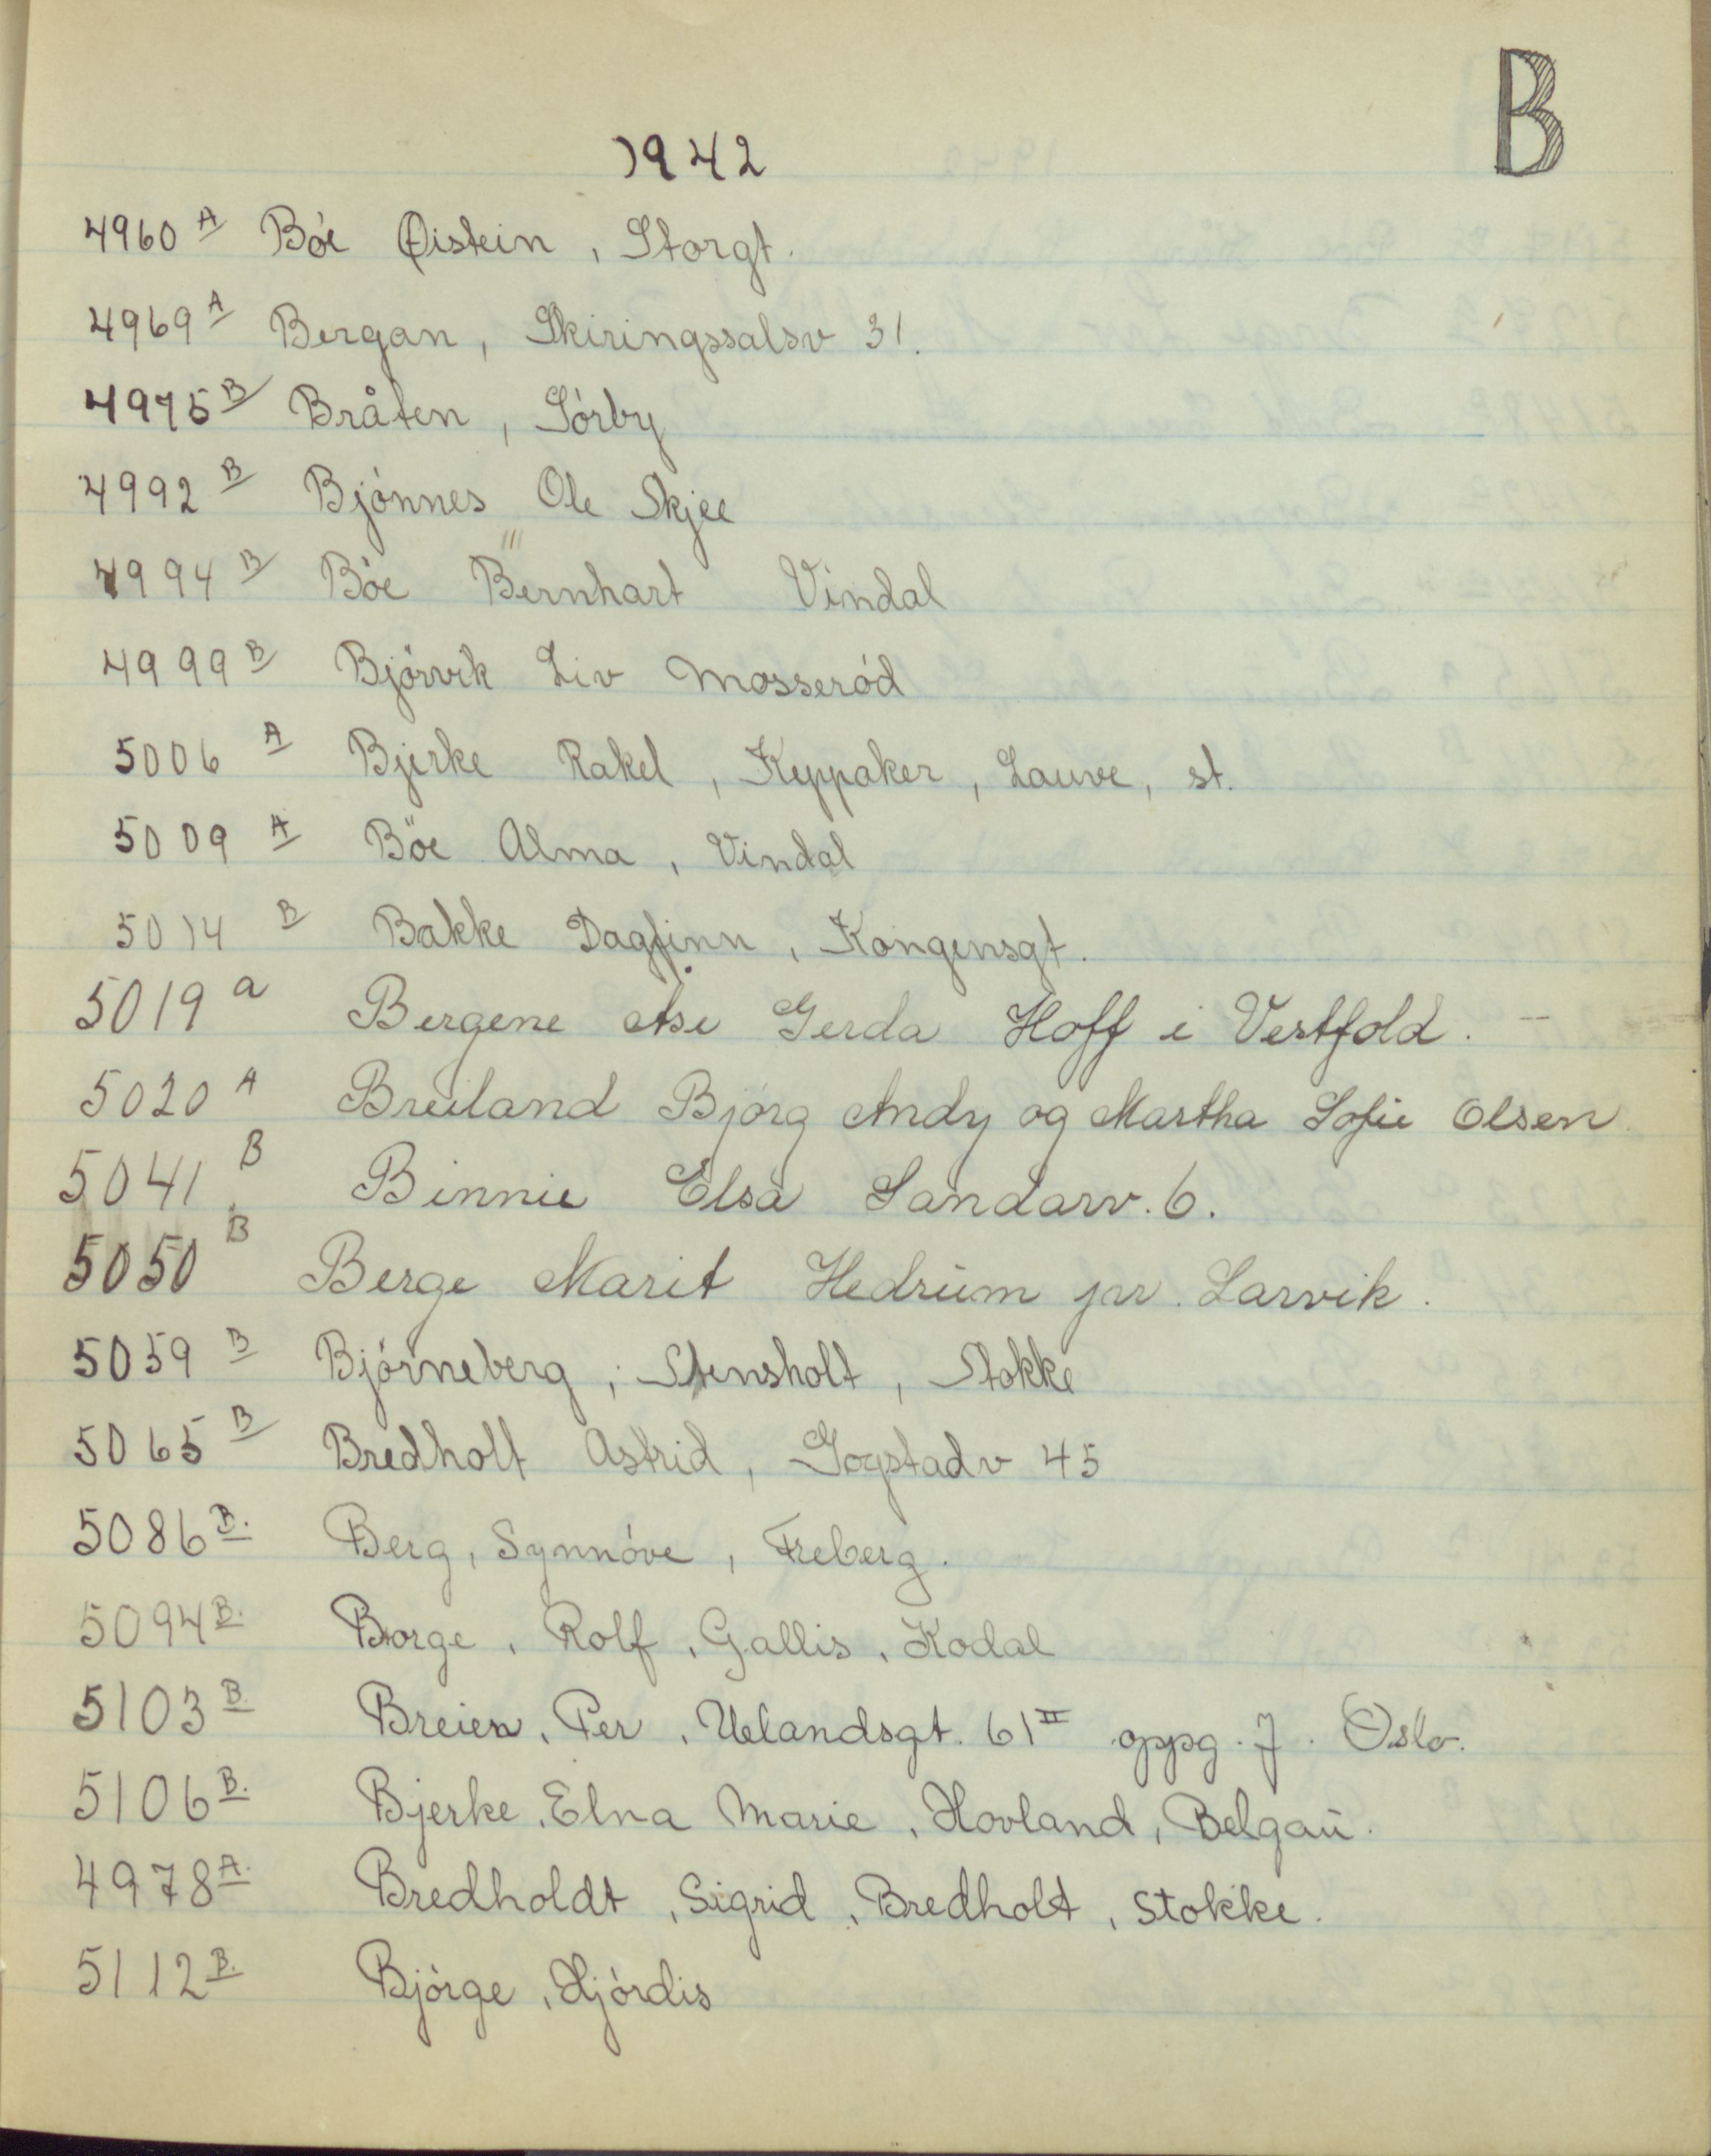 B
1942
4960 A Bóe Øistein, Storgt.
4969 A Bergan, Skiringssalsv 31.
4975 B Bråten, Sórby
4992 B Bjónnes Ole Skjee
4994 B Bóe Bernhart Vindal
4999 B Bjórvik Liv Mosseród
5006 A Bjerke Rakel, Keppaker, Lauve, st.
5009 A Böe Alma, Vindal
5014 B Bakke Dagfinn, Kongensgt.
5019 a Bergene Åse Gerda Hoff i Vestfold. -
5020 A Breiland Bjórg Andy og Martha Sofie Olsen
5041 B Binnie Elsa Sandarv. 6.
5050 B Berge Marit Hedrum pr. Larvik.
5059 B Bjórneberg, Stensholt, Stokke
5065 B Bredholt Astrid, Gogstadv 45
5086 B. Berg, Synnóve, Freberg.
5094 B. Borge, Rolf, Gallis, Kodal
5103 B. Breien, Per, Uelandsgt. 61 II oppg. J. Oslo.
5106 B. Bjerke, Elna Marie, Hovland, Belgau.
4978 A. Bredholdt, Sigrid, Bredholt, Stokke.
5112 B. Bjórge, Hjórdis